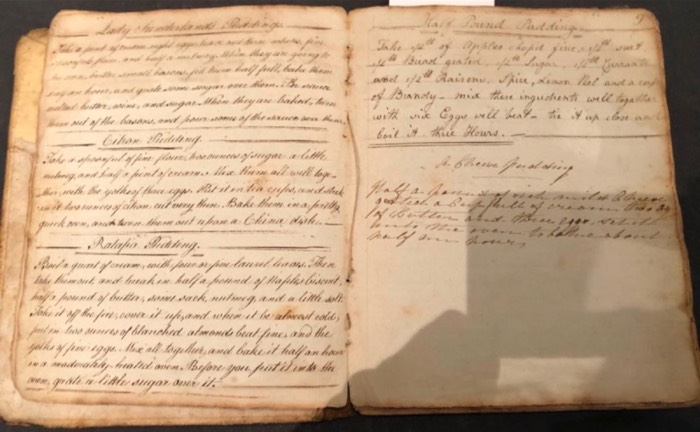 Lady Sunderlands Pudding.
Take a pint of cream, eight eggs, leave out three whites, five
spoonfuls flour, and half a nutmeg. When they are going to
be oven, butter small basons, fill them half full, bake them
half an hour, and grate some sugar over them. The sauce
melted butter, wine, and sugar. When they are baked, turn
them out of the basons, and pour some of the sauce over them.
Citron Pudding.
Take a spoonful of fine flour, two ounces of sugar, a little
nutmeg, and half a pint of cream. Mix them all well toge-
ther, with the yolks of three eggs. Put it in tea cups, and stick
in it two ounces of citron, cut very thin. Bake them in a pretty
quick oven, and turn them out upon a China dish.
Ratafia Pudding.
Boil a quart of cream, with four or five laurel leaves. Then
take them out, and break in half a pound of Naples biscuit,
half a pound of butter, some sack, nutmeg, and a little salt.
Take it off the fire, cover it up, and when it be almost cold,
put in two ounces of blanched almonds beat fine, and the
yolks of five eggs. Mix all together, and bake it half an hour
in a moderately heated oven. Before you put it into the
oven, grate a little sugar over it.
9
Half Pound Pudding.
Take 1/2 lb of Apples chopd fine, 1/2 lb suet
1/2 lb Bread grated, 1/2 lb Sugar, 1/2 lb Currants
and 1/2 lb Raisins, Spice, Lemon Peel and a cup
of Brandy - mix these ingredients well together
with six Eggs well beat - tie it up close and
boil it three Hours.
A Cheese Pudding
Half a pound of rich mild Cheese
grated a cup full of cream two oz
of Butter and three eggs,
into the oven to bake about
half an hour,